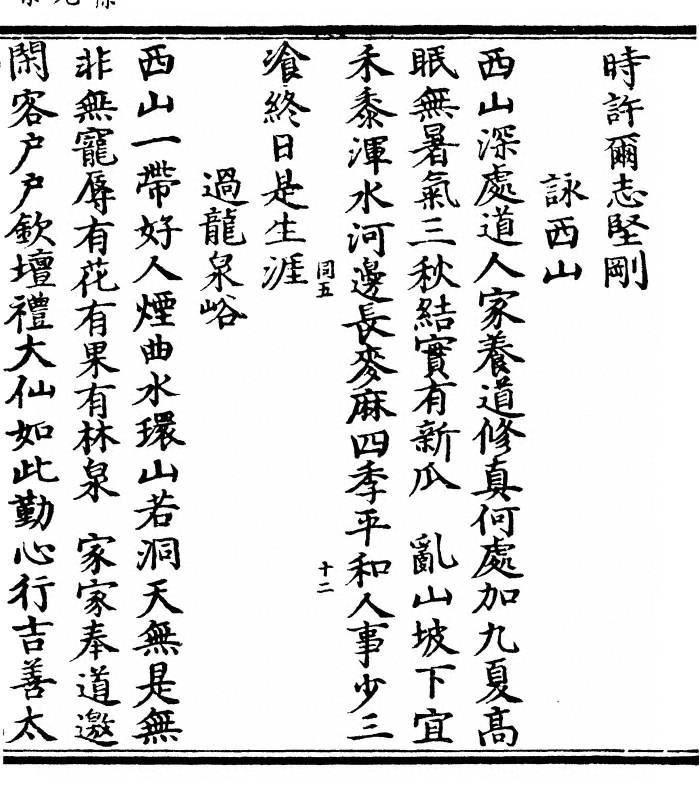 時許爾志堅剛
詠西山
西山深處道人家養道修真何處加九夏高
眠無暑氣三秋結實有新瓜　亂山坡下宜
禾黍渾水河邊長麥麻四季平和人事少三
同五
十二
飡終日是生涯
過龍泉峪
西山一帶好人煙曲水環山若洞天無是無
非無寵辱有花有果有林泉　家家奉道邀
閑客户户欽壇禮大仙如此勤心行吉善太